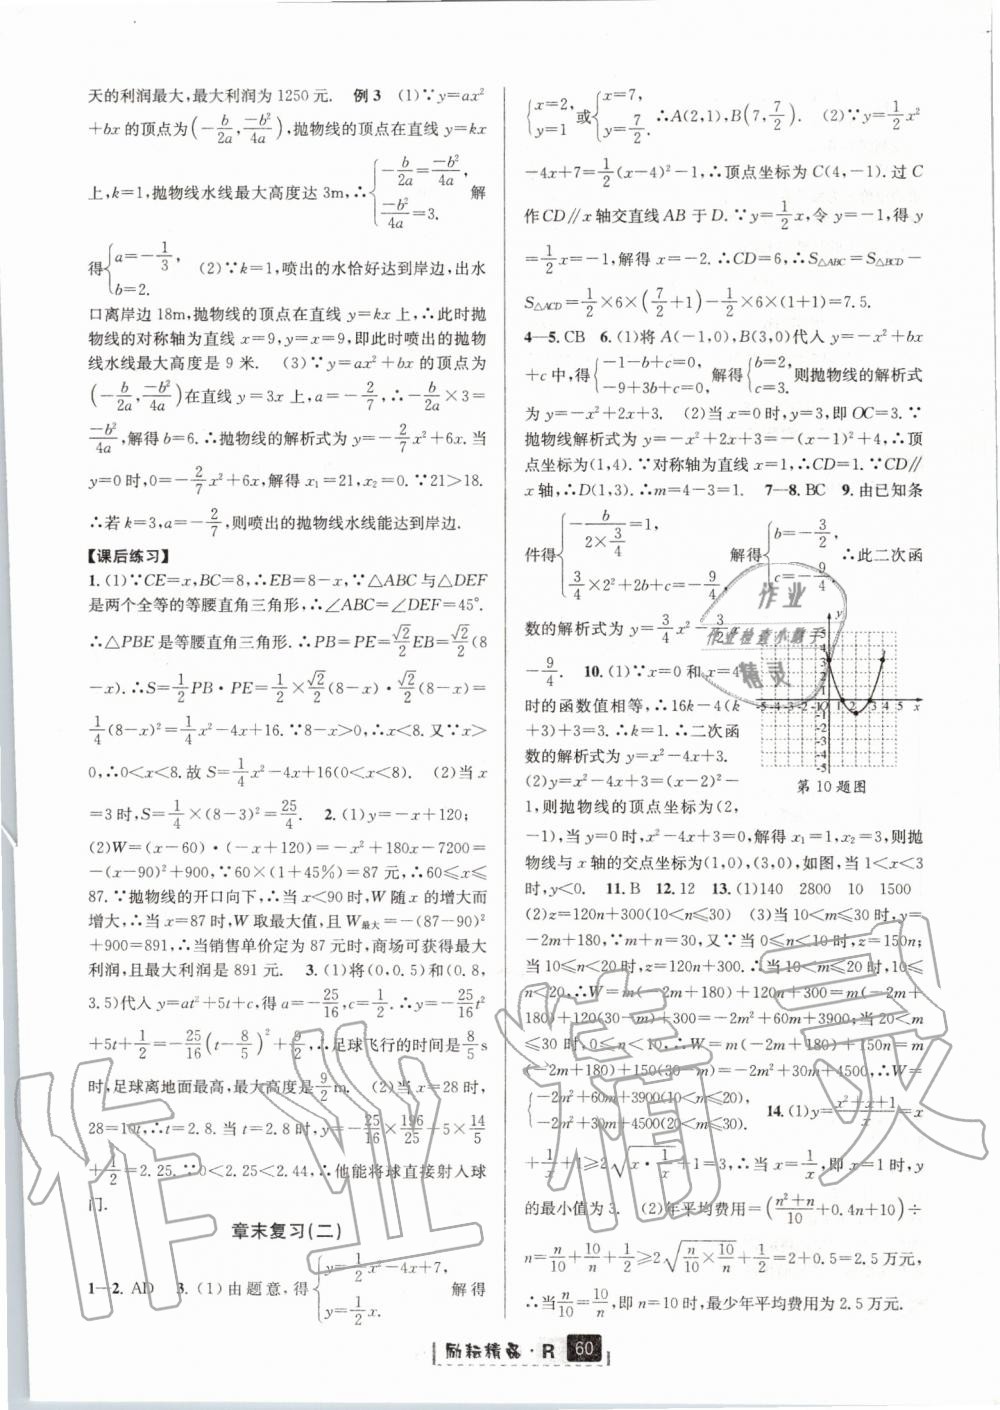 天的利润最大,最大利润为 1250 元. 例 3 (1)∵y=ax²
+bx 的顶点为(-b/2a, -b²/4a),抛物线的顶点在直线 y=kx
上,k=1,抛物线水线最大高度达 3m,∴{-b/2a=-b²/4a, -b²/4a=3. 解
得{a=-1/3, b=2. (2)∵k=1,喷出的水恰好达到岸边,出水
口离岸边 18m,抛物线的顶点在直线 y=kx 上,∴此时抛
物线的对称轴为直线 x=9,y=x=9,即此时喷出的抛物
线水线最大高度是 9 米. (3)∵y=ax²+bx 的顶点为
(-b/2a, -b²/4a)在直线 y=3x 上,a=-2/7,∴-b/2a×3=
-b²/4a,解得 b=6.∴抛物线的解析式为 y=-2/7x²+6x.当
y=0时,0=-2/7x²+6x,解得 x₁=21,x₂=0.∵21>18.
∴若 k=3,a=-2/7,则喷出的抛物线水线能达到岸边.
【课后练习】
1.(1)∵CE=x,BC=8,∴EB=8-x,∵△ABC 与△DEF
是两个全等的等腰直角三角形,∴∠ABC=∠DEF=45°.
∴△PBE 是等腰直角三角形.∴PB=PE=√2/2EB=√2/2(8
-x).∴S=1/2PB·PE=1/2×√2/2(8-x)×√2/2(8-x)=
1/4(8-x)²=1/4x²-4x+16.∵8-x>0,∴x<8.又∵x>
0,∴0<x<8.故 S=1/4x²-4x+16(0<x<8). (2)当 x
=3时,S=1/4×(8-3)²=25/4. 2.(1)y=-x+120;
(2)W=(x-60)·(-x+120)=-x²+180x-7200=
-(x-90)²+900.∵60×(1+45%)=87 元,∴60≤x≤
87.∵抛物线的开口向下,∴当 x<90 时,W 随 x 的增大而
增大,∴当 x=87 时,W 取最大值,且 W最大=-(87-90)²
+900=891,∴当销售单价定为 87 元时,商场可获得最大
利润,且最大利润是 891 元. 3.(1)将(0,0.5)和(0.8,
3.5)代人 y=at²+5t+c,得 a=-25/16,c=1/2.∴y=-25/16t²
+5t+1/2=-25/16(t-8/5)²+9/2.∴足球飞行的时间是8/5s
时,足球离地面最高,最大高度是9/2m. (2)当 x=28 时,
28=10t,∴t=2.8.当 t=2.8 时,y=-25/16×196/25+5×14/5
+1/2=2.25.∵0<2.25<2.44,∴他能将球直接射入球
门.
章末复习(二)
1—2. AD 3.(1)由题意,得{y=1/2x²-4x+7, y=1/2x. 解得
{x=2, y=1 或{x=7, y=7/2. ∴A(2,1),B(7,7/2). (2)∵y=1/2x²
-4x+7=1/2(x-4)²-1,∴顶点坐标为 C(4,-1).过 C
作 CD∥x 轴交直线 AB 于 D.∵y=1/2x,令 y=-1,得 y
=1/2x=-1,解得 x=-2.∴CD=6,∴S△ABC=S△BCD-
S△ACD=1/2×6×(7/2+1)-1/2×6×(1+1)=7.5.
4—5. CB 6.(1)将 A(-1,0),B(3,0)代人 y=-x²+bx
+c 中,得{-1-b+c=0, -9+3b+c=0, 解得{b=2, c=3. 则抛物线的解析式
为 y=-x²+2x+3. (2)当 x=0 时,y=3,即 OC=3.∵
抛物线解析式为 y=-x²+2x+3=-(x-1)²+4,∴顶
点坐标为(1,4).∵对称轴为直线 x=1,∴CD=1.∵CD∥
x 轴,∴D(1,3).∴m=4-3=1. 7—8. BC 9.由已知条
件得{-b/(2×3/4)=1, 3/4×2²+2b+c=-9/4, 解得{b=-3/2, c=-9/4. ∴此二次函
数的解析式为 y=3/4x²-3/2x
-9/4. 10.(1)∵x=0 和 x=4
时的函数值相等,∴16k-4(k
+3)+3=3.∴k=1.∴二次函
数的解析式为 y=x²-4x+3.
(2)y=x²-4x+3=(x-2)²-
1,则抛物线的顶点坐标为(2,
第 10 题图
-1),当 y=0 时,x²-4x+3=0,解得 x₁=1,x₂=3,则抛
物线与 x 轴的交点坐标为(1,0),(3,0),如图,当 1<x<3
时,y<0. 11. B 12. 12 13.(1)140 2800 10 1500
(2)z=120n+300(10<n≤30) (3)当 10<m≤30 时,y=
-2m+180,∵m+n=30,又∵当 0≤n≤10 时,z=150n;
当 10≤n<20 时,z=120n+300.∴当 10<m≤20 时,10≤
n<20,∴W=m(-2m+180)+120n+300=m(-2m+
180)+120(30-m)+300=-2m²+60m+3900;当 20<m
≤30 时,0≤n≤10,∴W=m(-2m+180)+150n=m(
-2m+180)+150(30-m)=-2m²+30m+4500,∴W=
{-2m²+60m+3900(10<m≤20), -2m²+30m+4500(20<m≤30). 14.(1)y=(x²+x+1)/x=x
+1/x+1≥2√(x·1/x)+1=3,∴当 x=1/x,即 x=1 时,y
的最小值为 3. (2)年平均费用=((n²+n)/10+0.4n+10)÷
n=n/10+10/n+1/2≥2√(n/10×10/n)+1/2=2+0.5=2.5 万元,
∴当n/10=10/n,即 n=10 时,最少年平均费用为 2.5 万元.
励耘精品·R 60
作业
作业检查小助手
精灵
作业精灵